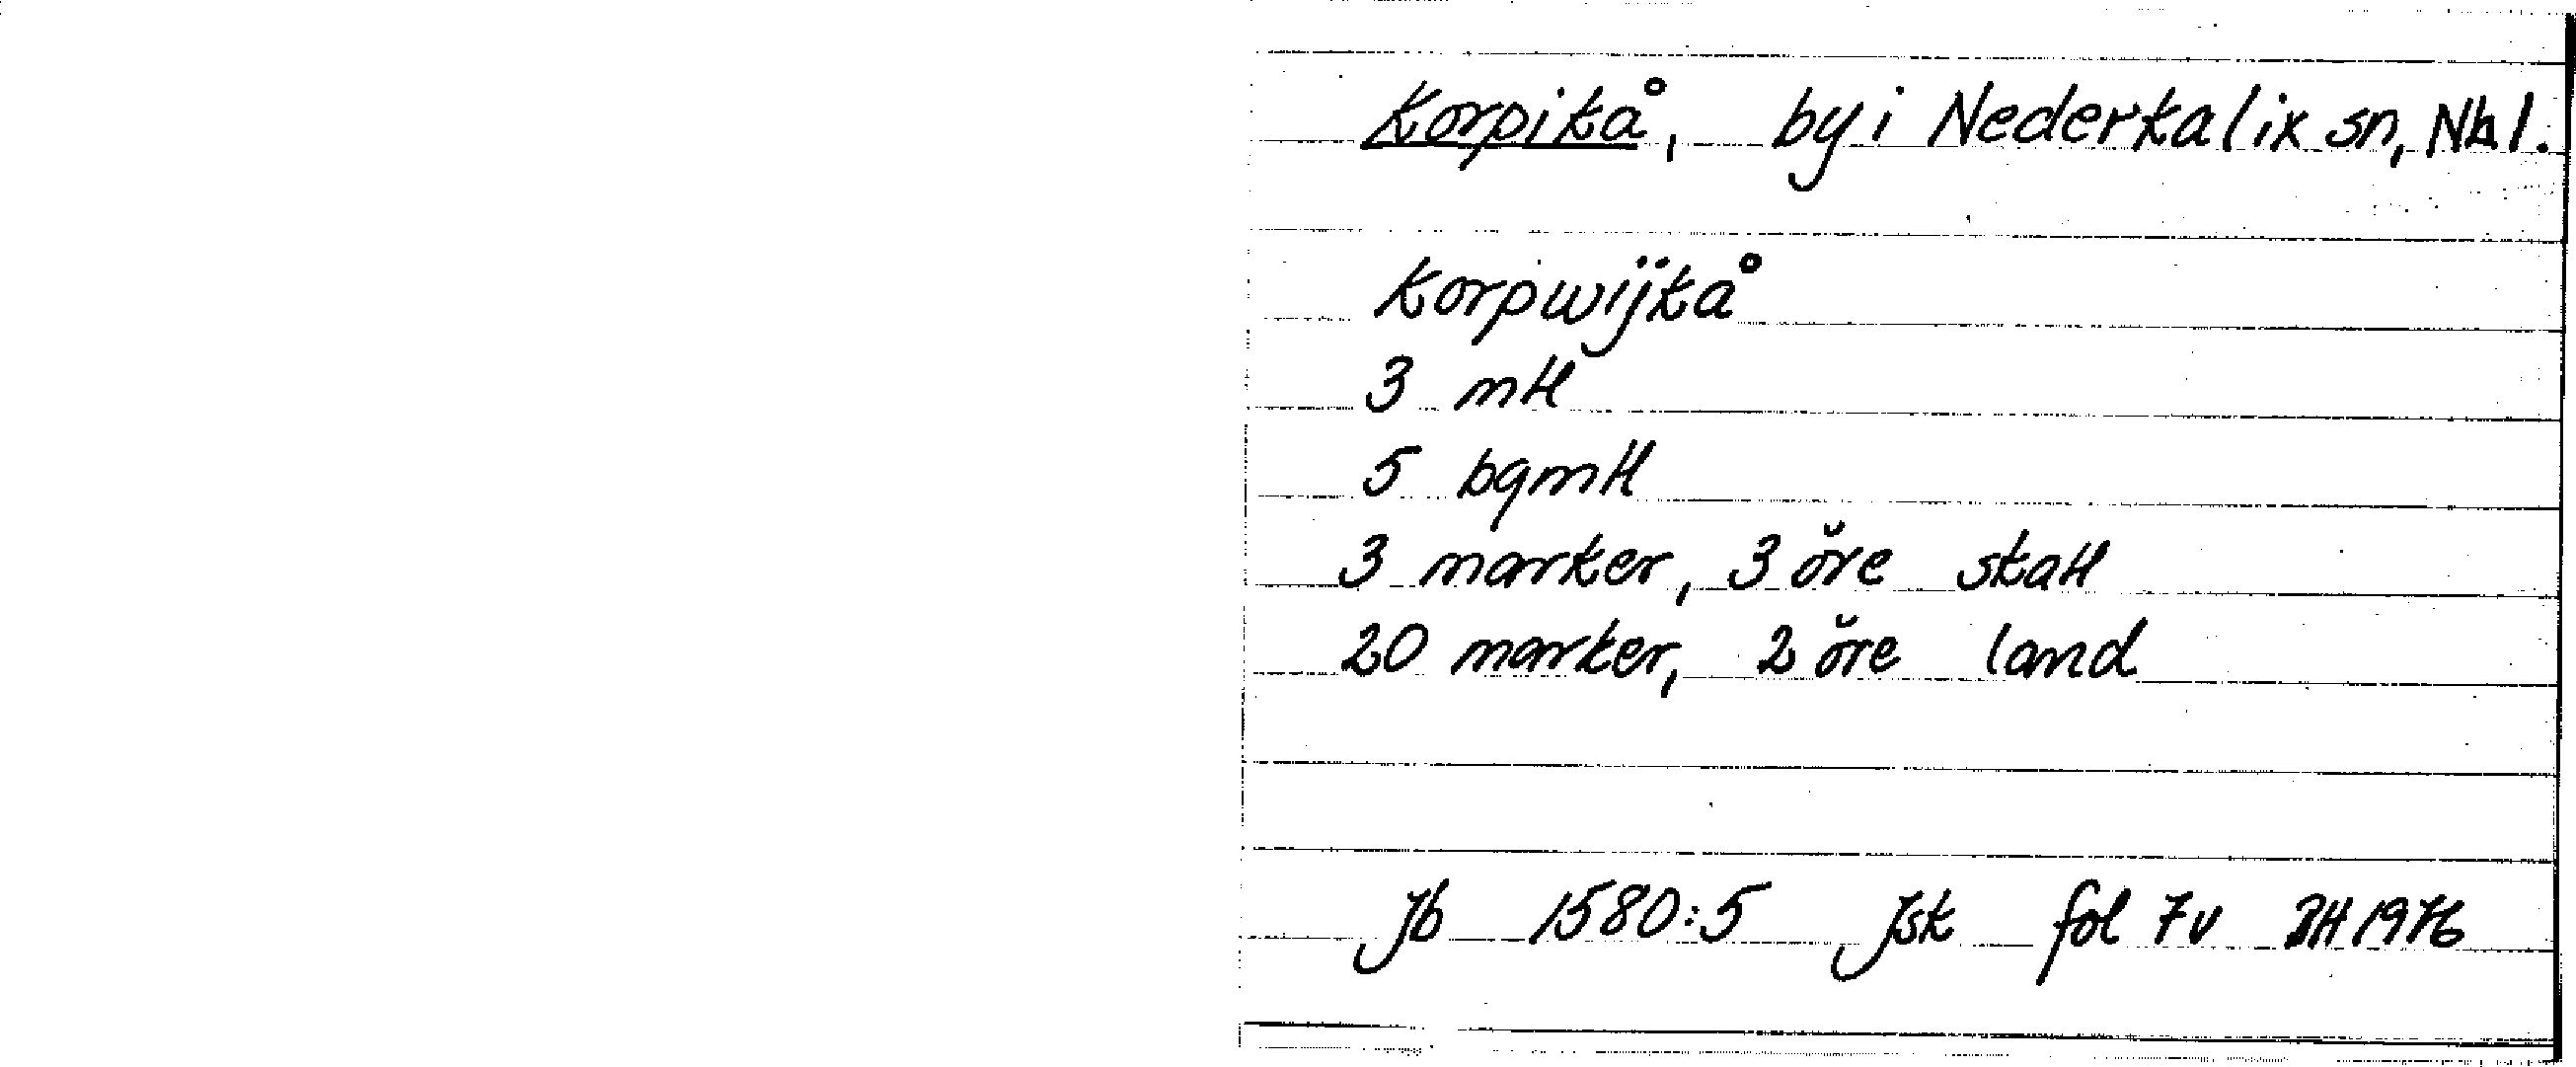 Korpikå, by i Nederkalix sn, Nbl.
Korpwijkå
3 mtl
5 bgmtl
3 marker, 3 öre skatt
20 marker, 2 öre land
Jb 1580:5 Jsk fol 7v BH 1976